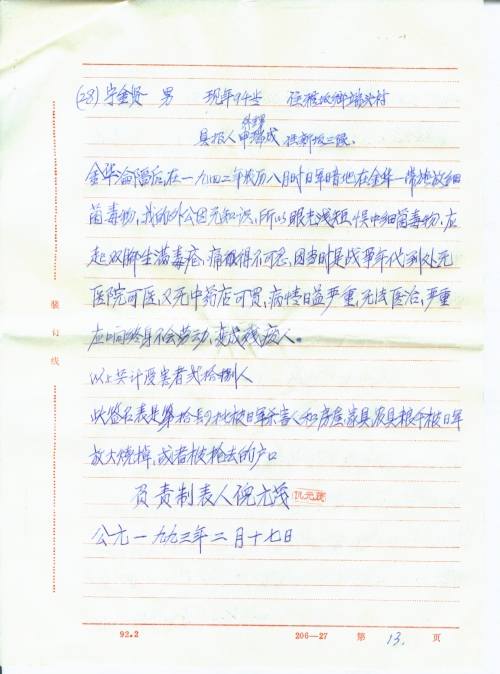 (28) 宁金贤 男 现年94岁 住雅畈乡端头村
具报人 申瑞成 住新坂三眼.
金华沦陷后,在一九四二年农历八月时日军暗地在金华一带施放细
菌毒物,我的外公因无知识,所以眼光浅短误中细菌毒物.应
起双脚生满毒疮,痛极得不可忍,因当时是战争年代到处无
医院可医,又无中药店可買,病情日益严重,无法医治,严重
应响终身不会劳动,变成残疾人。
以上共计受害者贰拾捌人
此签名表是 被日军杀害人和房屋家具农具粮食被日军
放火烧掉,或者被抢去的户口
负责制表人倪元茂
公元一九九三年二月十七日
92.2 206—27 第 13. 页
装订线